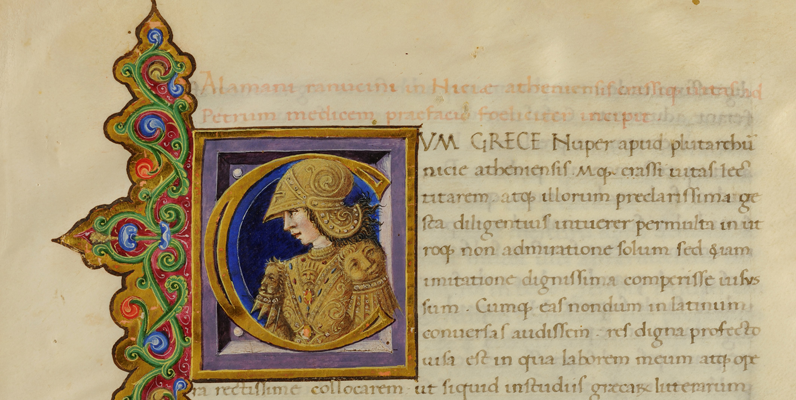 Alamani ranucini in Niciae atheniensis crassiq uitas ad
Petrum medicem praefacio foeliciter incipit
CVM GRECE Nuper apud plutarchū
nicie atheniensis Mq. crassi uitas lec
titarem atq illorum preclarissima ge
sta diligentius intuerer permulta in ut
roq non admiratione solum sed etiam
imitatione dignissima comperisse uisus
sum. Cumq eas nondum in latinum
conuersas audissem. res digna profecto
uisa est in qua laborem meum atq ope
ra rectissime collocarem. ut siquid in studiis grecarum litterarum